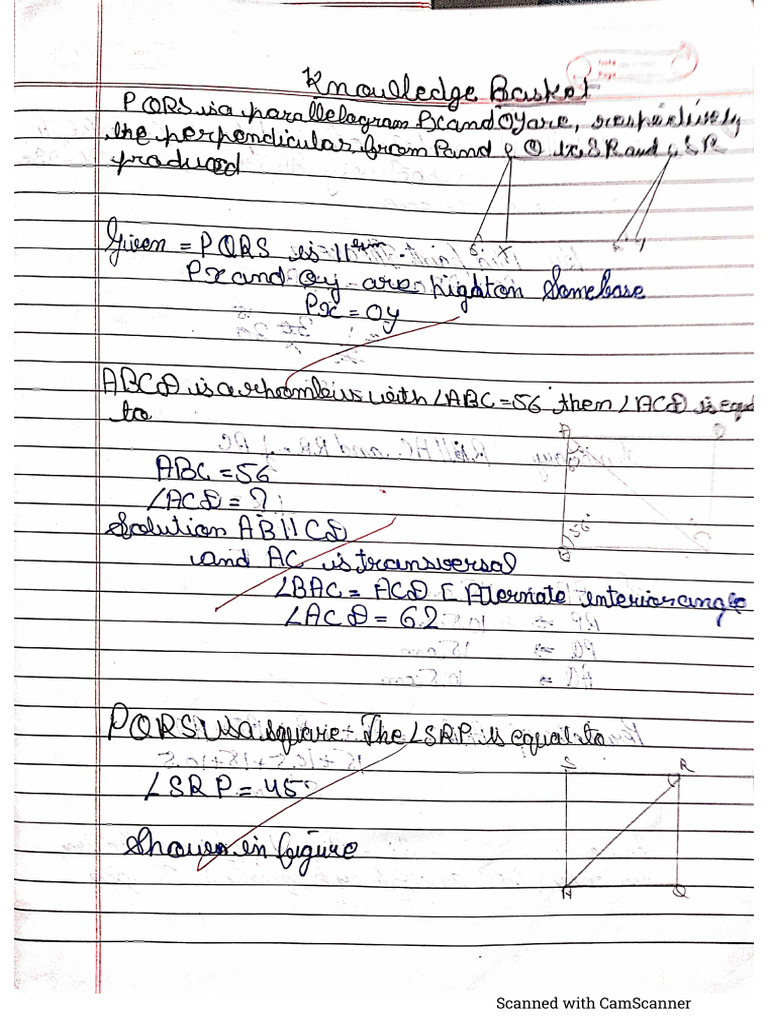 Knowledge Basket
PQRS is a parallelogram and QY are, respectively
the perpendicular from P and Q to SR and SR
produced
Given = PQRS is 11gm.
S X Y
PX and QY are hight on Same base
PX = QY
ABCD is a rhombus with ∠ABC = 56° then ∠ACD is equal
to
ABC = 56
∠ACD = ?
Solution AB11CD
and AC is transversal
∠BAC = ACD [ Alternate interior angle
∠ACD = 62
A D
B 56° C
PQRS is a square. The ∠SRP is equal to
∠SRP = 45°
Shown in figure
S R
P Q
Scanned with CamScanner